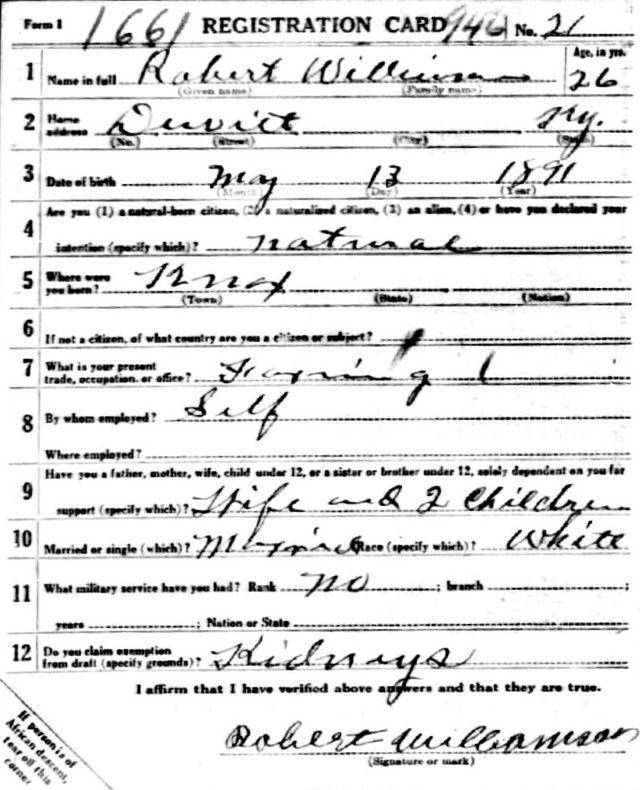 Form 1 1661 REGISTRATION CARD 946 No. 21
1 Name in full Robert Williams Age, in yrs. 26
(Given name) (Family name)
2 Home address Dewitt Ky.
(No.) (Street) (City) (State)
3 Date of birth May 13 1891
(Month) (Day) (Year)
4 Are you (1) a natural-born citizen, (2) a naturalized citizen, (3) an alien, (4) or have you declared your
intention (specify which)? natural
5 Where were you born? Knox
(Town) (State) (Nation)
6 If not a citizen, of what country are you a citizen or subject?
7 What is your present
trade, occupation, or office? Farming
8 By whom employed? Self
Where employed?
9 Have you a father, mother, wife, child under 12, or a sister or brother under 12, solely dependent on you for
support (specify which)? Wife and 2 Children
10 Married or single (which)? Married Race (specify which)? White
11 What military service have you had? Rank no ; branch ;
years ; Nation or State
12 Do you claim exemption
from draft (specify grounds)? Kidneys
I affirm that I have verified above answers and that they are true.
Robert Williamson
(Signature or mark)
If person is of
African descent,
tear off this
corner